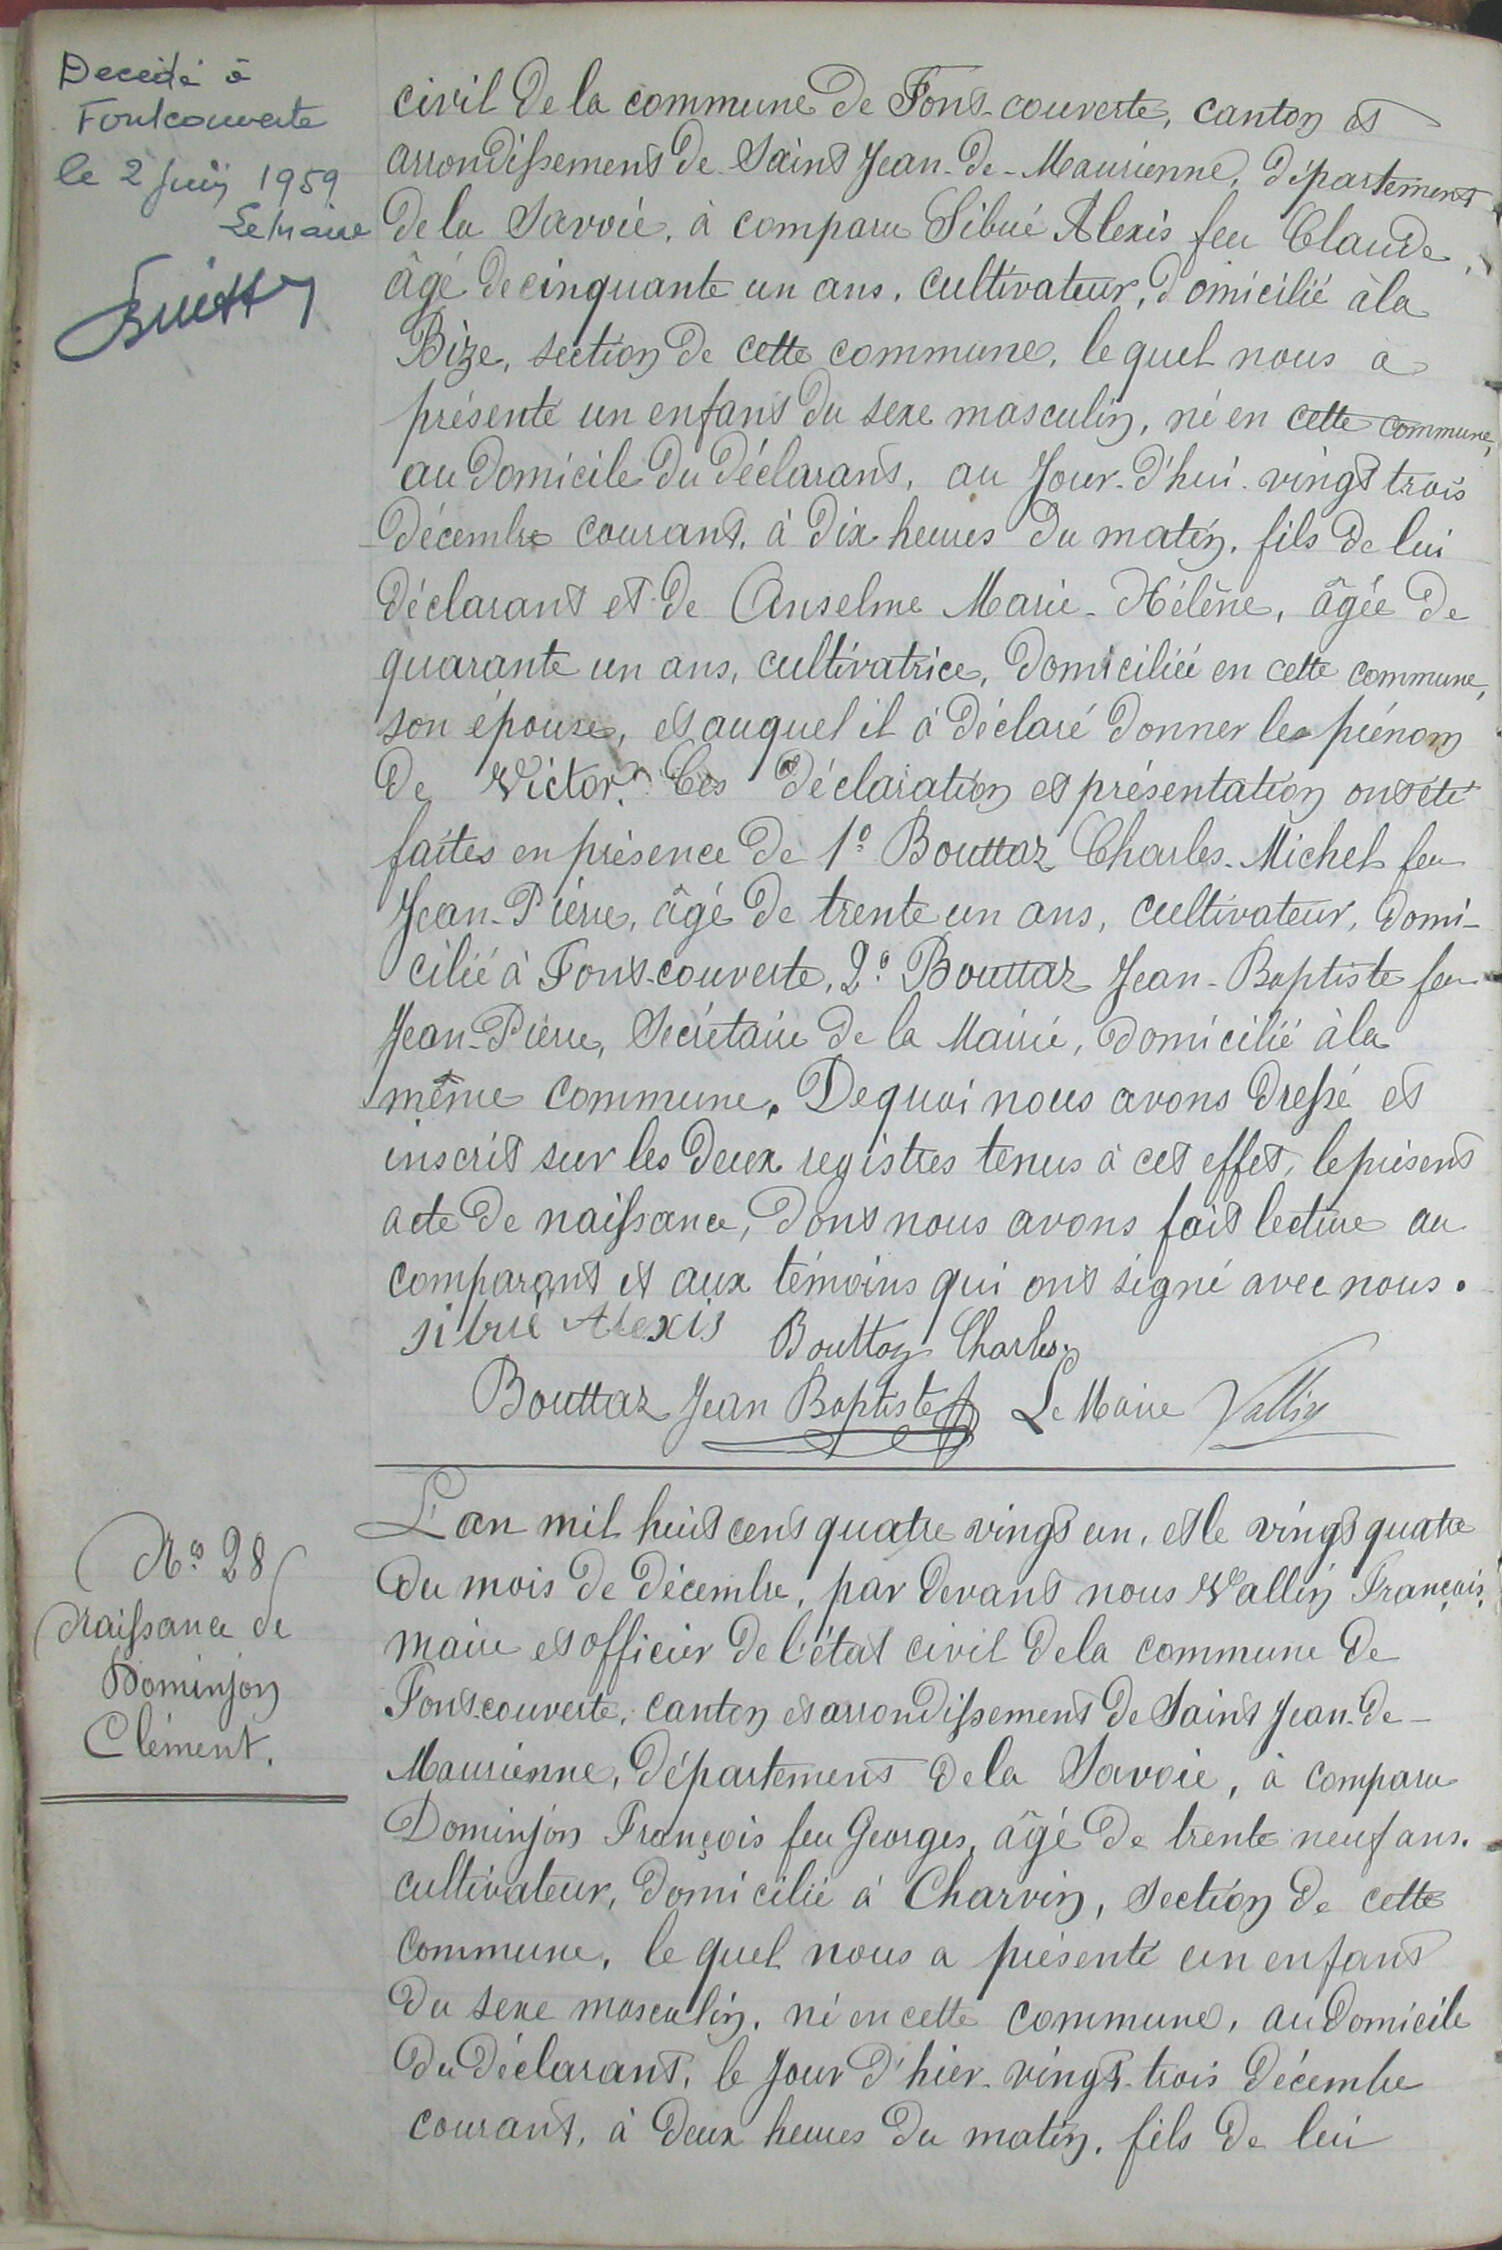 Decédé à
Fontcouverte
le 2 Juin 1959
Le maire
civil de la commune de Font-couverte, canton et
arrondissement de Saint Jean-de-Maurienne, département
de la Savoie, à comparu Sibué Alexis feu Claude,
âgé de cinquante un ans, cultivateur, domicilié à la
Bize, section de cette commune, le quel nous a
présenté un enfant du sexe masculin, né en cette commune,
au domicile du déclarant, au Jour-d'hui vingt trois
décembre courant, à dix heures du matin, fils de lui
déclarant et de Anselme Marie-Hélène, âgée de
quarante un ans, cultivatrice, domiciliée en cette commune,
son épouse, et auquel il à déclaré donner le prénom
de Victor. Ces déclaration et présentation ont été
faites en présence de 1º Bouttaz Charles-Michel feu
Jean-Pierre, âgé de trente un ans, cultivateur, domi-
cilié à Font-couverte, 2º Bouttaz Jean-Baptiste feu
Jean-Pierre, Secrétaire de la Mairie, domicilié à la
même commune. De quoi nous avons dressé et
inscrit sur les deux registres tenus à cet effet, le présent
acte de naissance, dont nous avons fait lecture au
comparant et aux témoins qui ont signé avec nous.
sibué Alexis Bouttaz Charles
Bouttaz Jean Baptiste Le Maire Vallin
Nº 28
Naissance de
Dominjon
Clément.
L'an mil huit cent quatre vingt un, et le vingt quatre
du mois de décembre, par devant nous Vallin François,
maire et officier de l'état civil de la commune de
Fontcouverte, canton et arrondissement de Saint Jean-de-
Maurienne, département de la Savoie, à comparu
Dominjon François feu Georges, âgé de trente neuf ans.
cultivateur, domicilié à Charvin, section de cette
commune, le quel nous a présenté un enfant
du sexe masculin, né en cette commune, au domicile
du déclarant, le Jour d'hier vingt-trois décembre
courant, à deux heures du matin, fils de lui